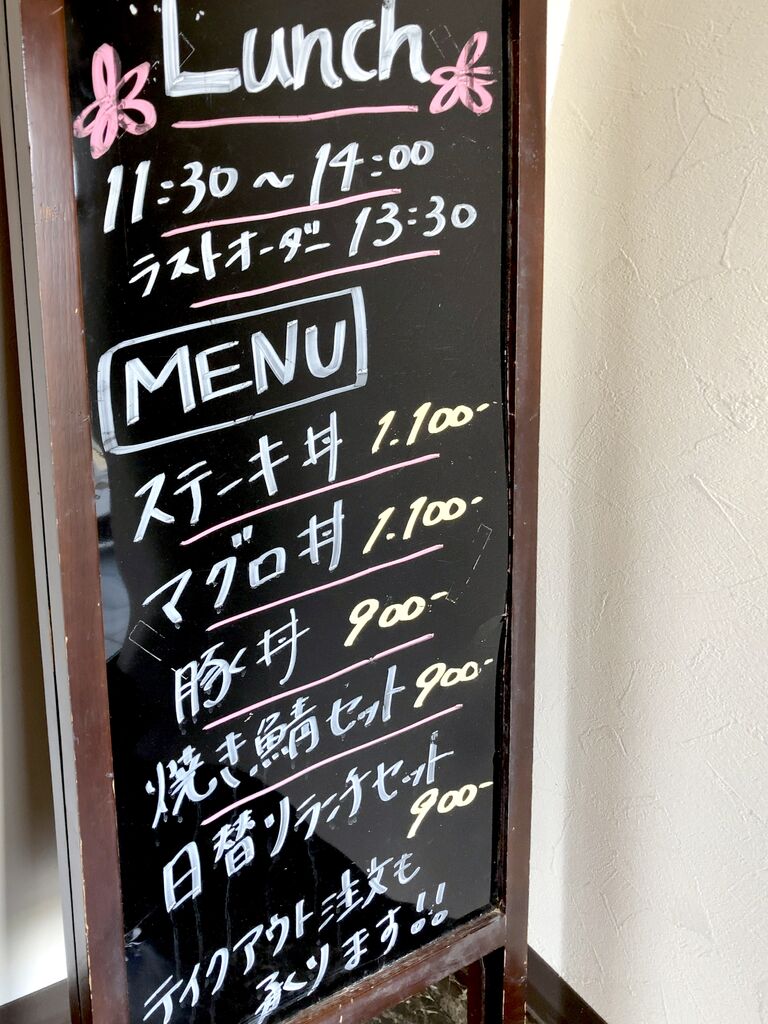 Lunch
11:30～14:00
ラストオーダー 13:30
MENU
ステーキ丼 1.100-
マグロ丼 1.100-
豚丼 900-
焼き鯖セット 900-
日替りランチセット
900-
テイクアウト注文も
承ります!!